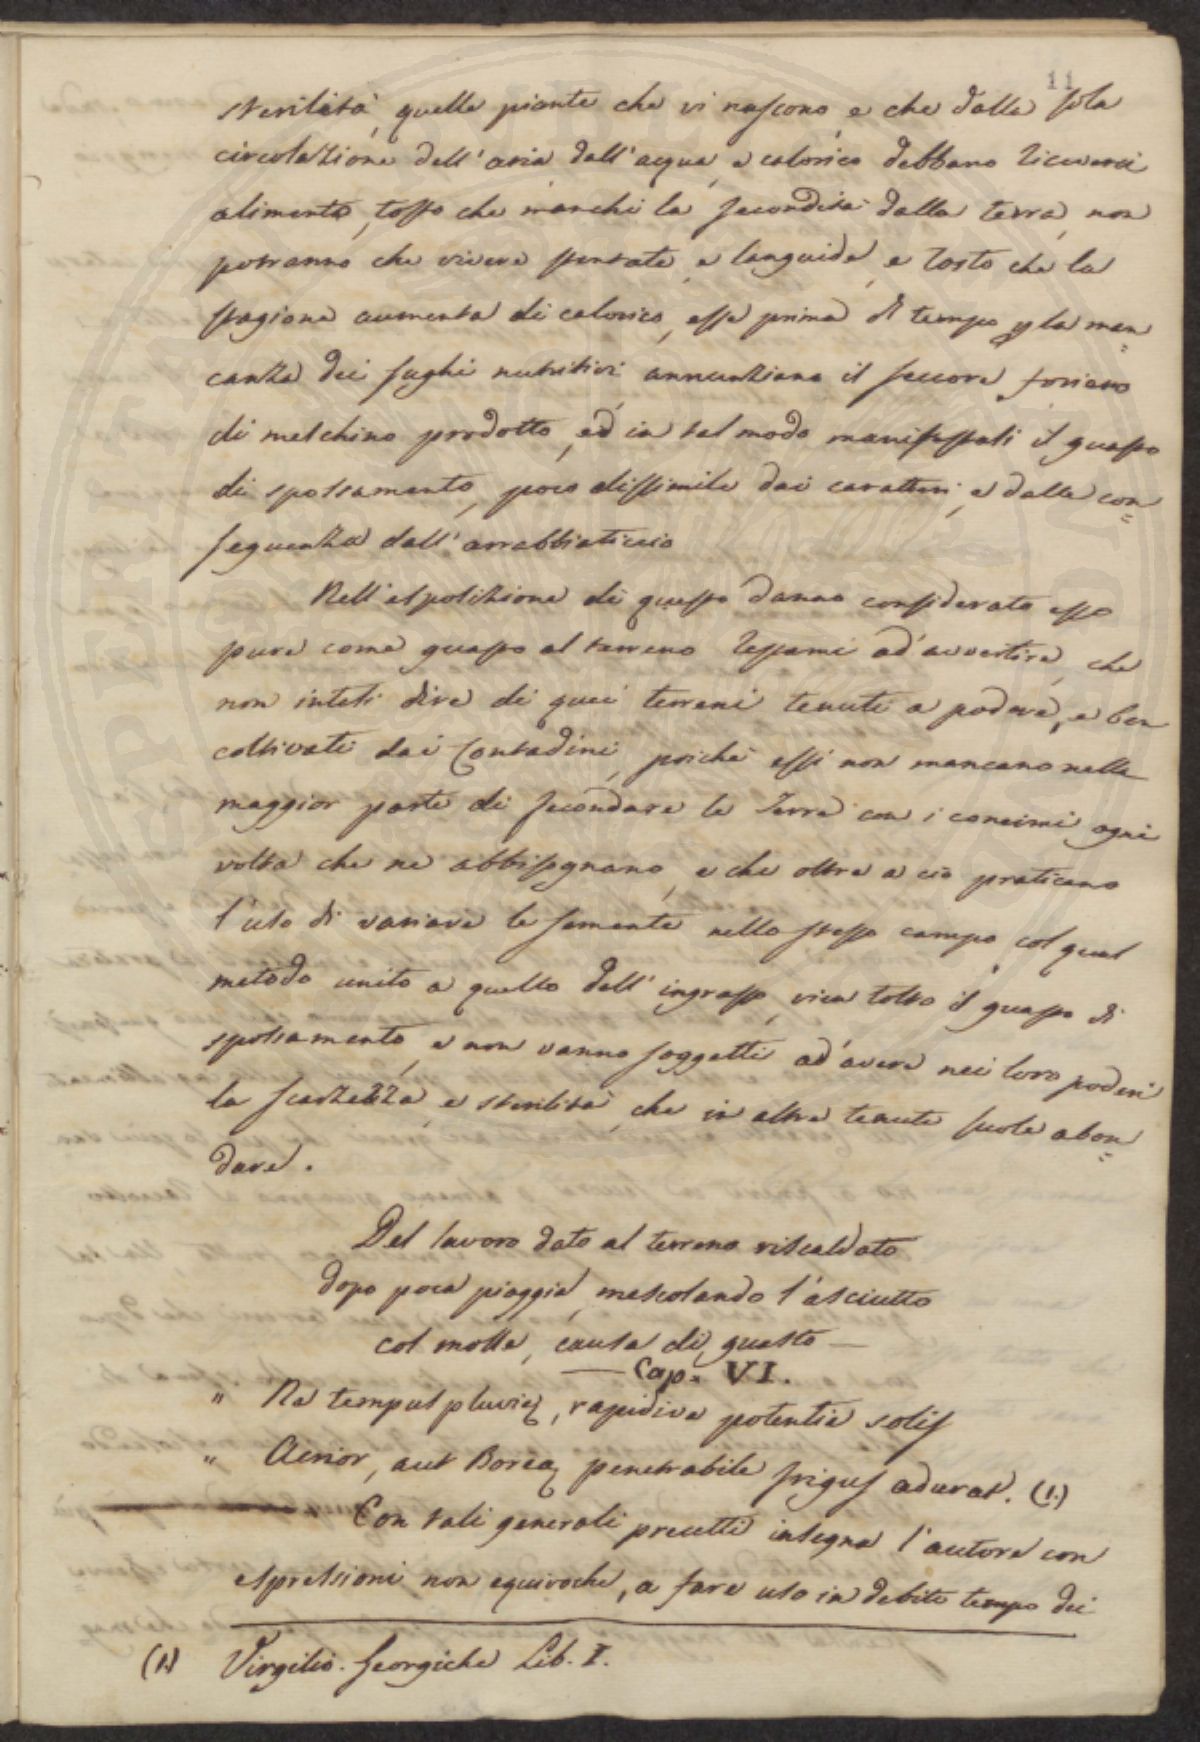 11
sterilità, quelle piante che vi nascono e che dalla sola
circolazione dell'aria dall'acqua, e calorico debbano ricevere
alimento, tosto che manchi la fecondità dalla terra, non
potranno che vivere stentate, e languide, e tosto che la
stagione aumenta di calorico, esse prima di tempo p la man
canza dei sughi nutritivi annunziano il seccore foriero
di meschino prodotto, ed in tal modo manifestasi il guasto
di spossamento, poco dissimile dai caratteri, e dalle con
seguenze dall'arrabbiaticcio
Nell'esposizione di questo danno considerato esso
pure come guasto al terreno restami ad'avvertire, che
non intesi dire di quei terreni tenuti a podere, e ben
coltivati dai Contadini, poichè essi non mancano nella
maggior parte di fecondare le Terre con i concimi ogni
volta che ne abbisognano, e che oltre a ciò praticano
l'uso di variare le semente nello stesso campo, col qual
metodo unito a quello dell'ingrasso, vien tolto il guasto di
spossamento, e non vanno soggetti ad'avere nei loro poderi
la scarzezza, e sterilità, che in altre tenute suole abon
dare.
Del lavoro dato al terreno riscaldato
dopo poca pioggia, mescolando l'asciutto
col molle, causa di guasto
Cap. VI.
" Ne tempus pluviæ, rapidive potentia solis
" Acrior, aut Boreæ penetrabile frigus adurat. (1.)
Con tali generali precetti insegna l'autore con
espressioni non equivoche, a fare uso in debito tempo dei
(1) Virgilio. Georgiche Lib. I.